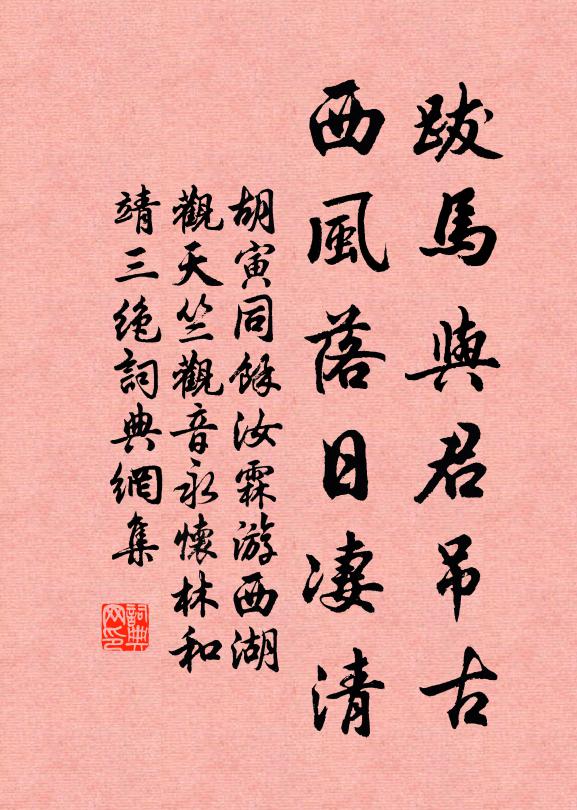 跋馬與君吊古
西風落日凄清
胡寅同餘汝霖游西湖
觀天竺觀音永懷林和
靖三絶詞典網集
詞典
网印